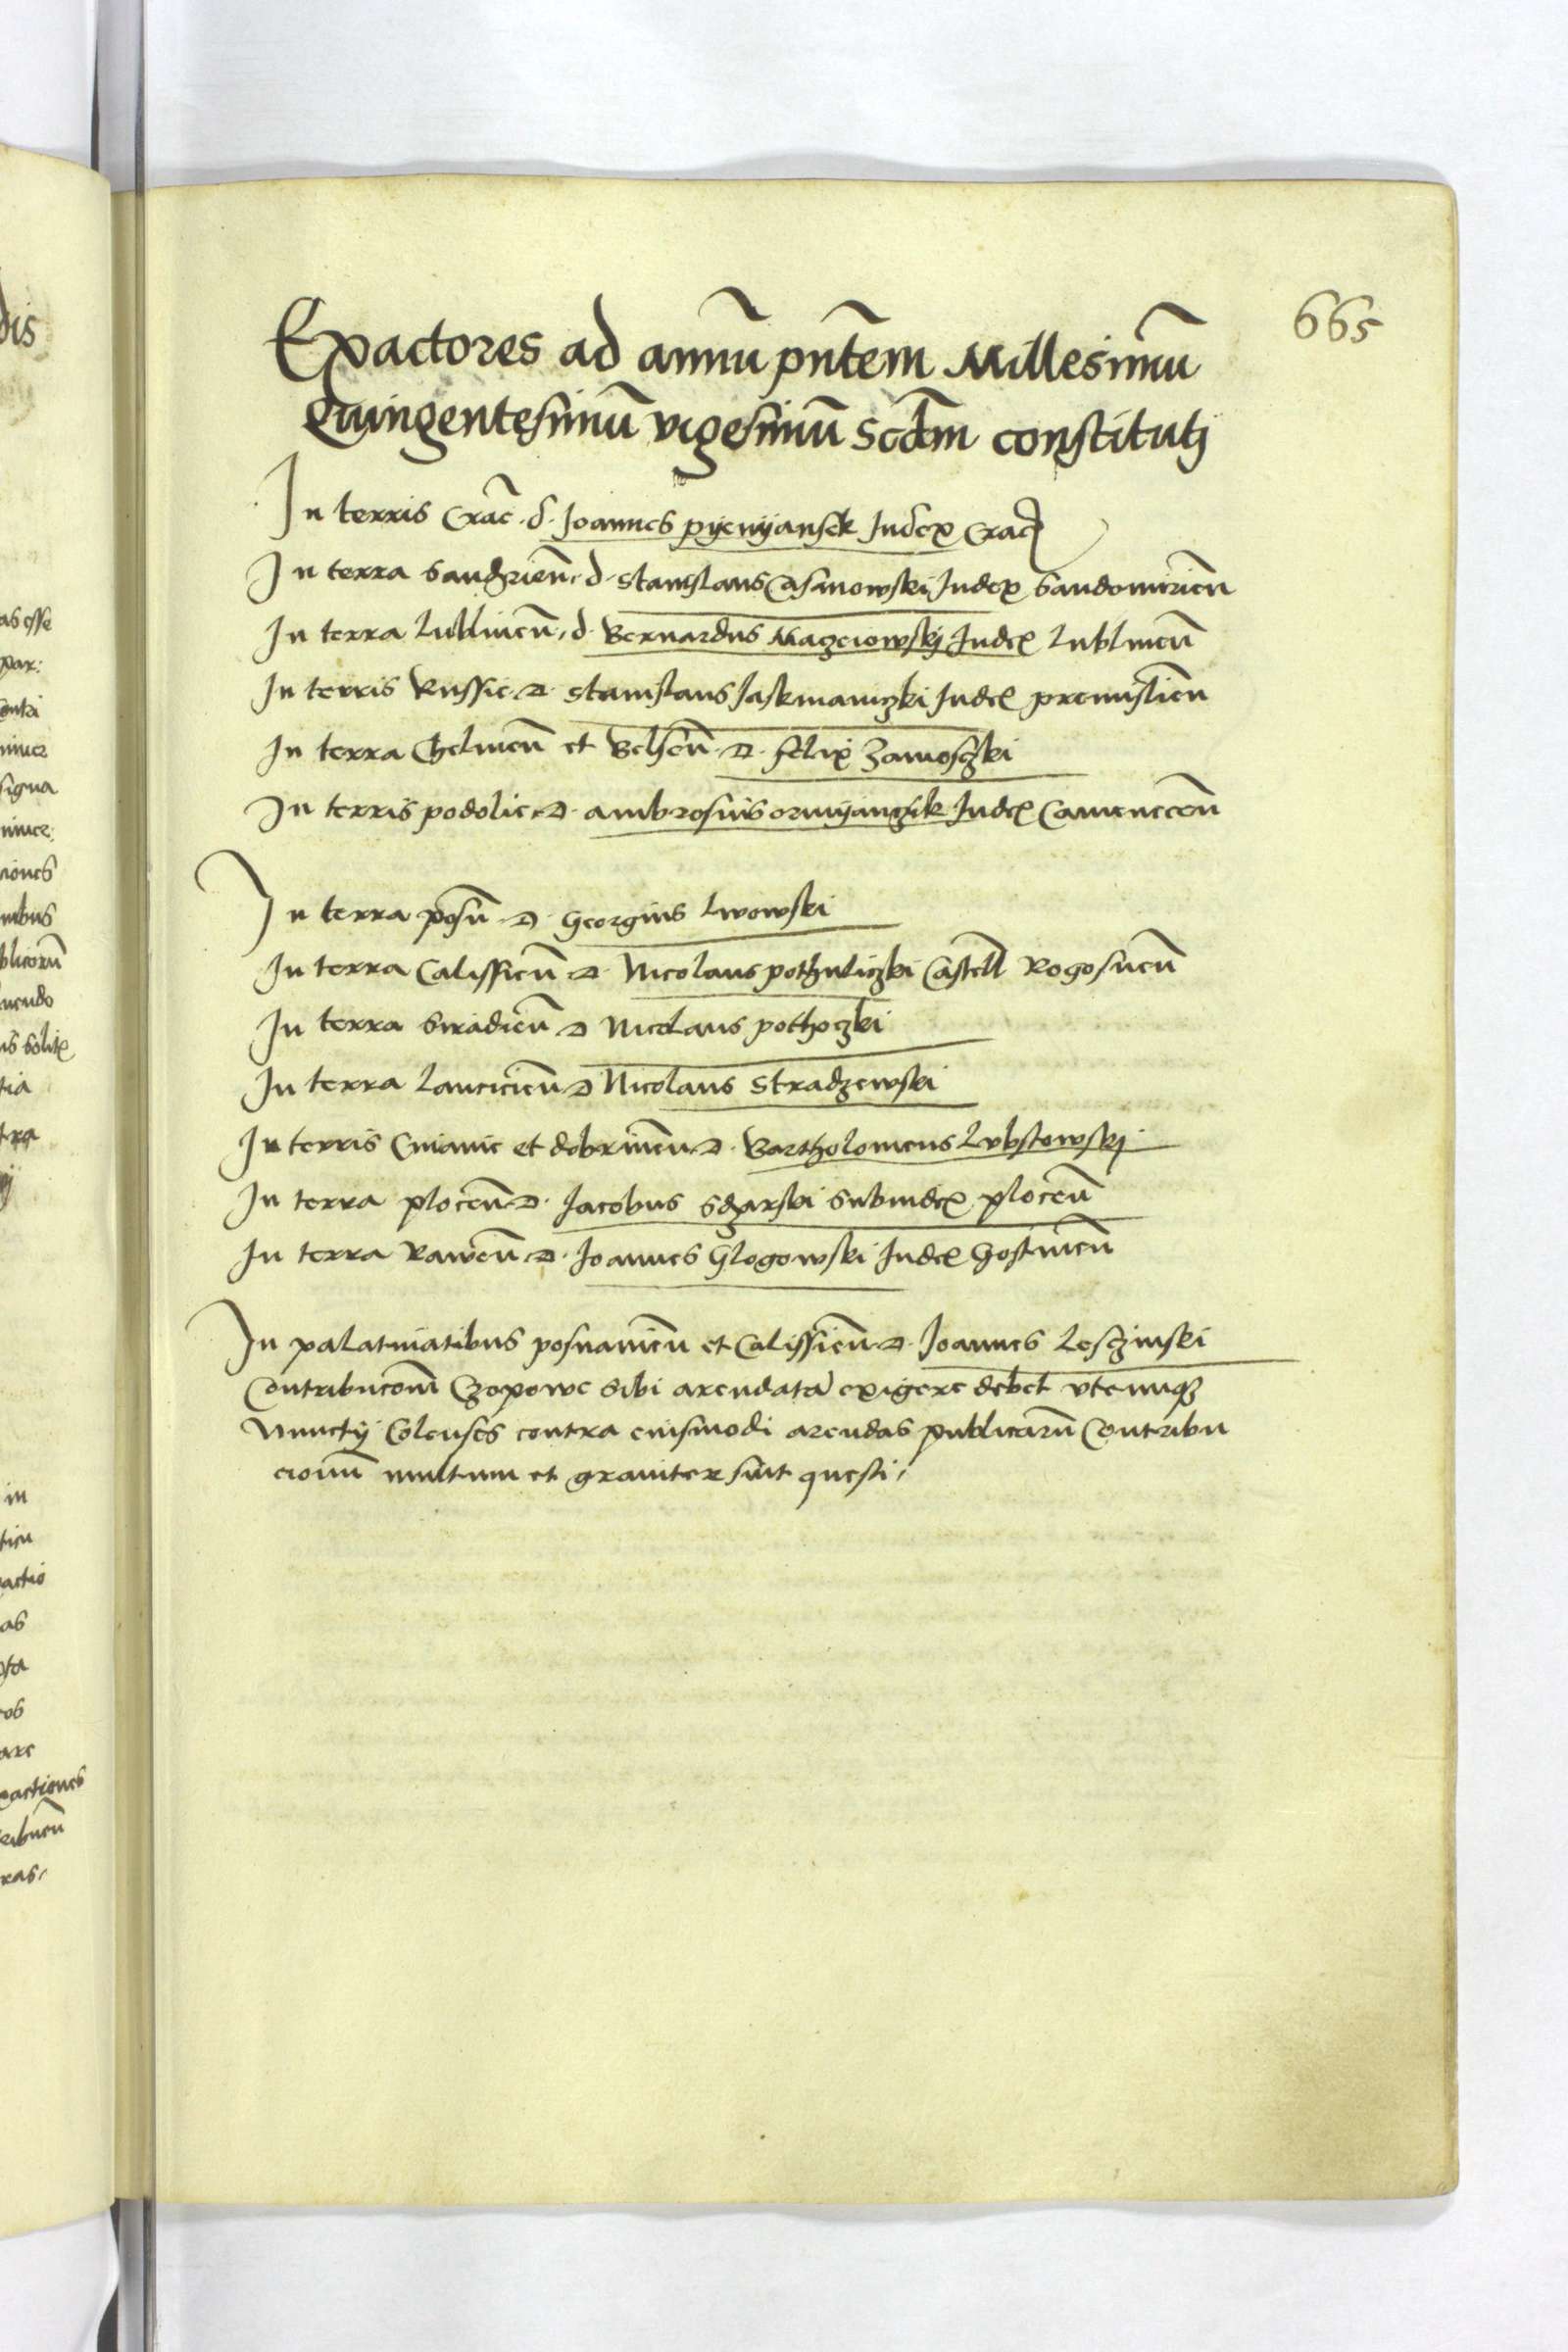 665
Exactores ad annu̅ pn̅tem Millesimu̅
Quingentesimu̅ vigesimu̅ Scd̅m constitutj
In terris Crac̅. d. Joannes pyenyansek Judex Crac̅
In terra Sandzien̅. d. Stanislaus Casinowski Judex Sandomirien̅
In terra Lublinen̅. d. Bernardus Maczeiowskj Judex Lublinen̅
In terris Russie. D. Stanislaus Jaskmaniczki Judex premislien̅
In terra Chelmen̅ et Belsen̅. D. felix Zamosczki
In terris podolie. D. ambrosius ormyanczik Judex Camenecen̅
In terra posn̅. D. Georgius Lwowski
In terra Calissien̅ D. Nicolaus pothuliczki Castell̅ Rogosnen̅
In terra Siradien̅ D Nicolaus pothoczki
In terra Lancicien̅ D Nicolaus Stradzewski
In terris Cuiauie et dobrinen̅. D. Bartholomeus Lubstowskj
In terra plocen̅. D. Jacobus Sdzarski Subiudex plocen̅
In terra Rawen̅. D. Joannes Glogowski Judex Gostinen̅
In palatinatibus posnanien̅ et Calissien̅. D. Joannes Lesczinski
Contribucom̅ Czopowe sibi arendata̅ exigere debet vtcunq3
Nunctij Colenses contra eiusmodi arendas publicaru̅ Contribu
cionu̅ multum et grauiter sint questi,